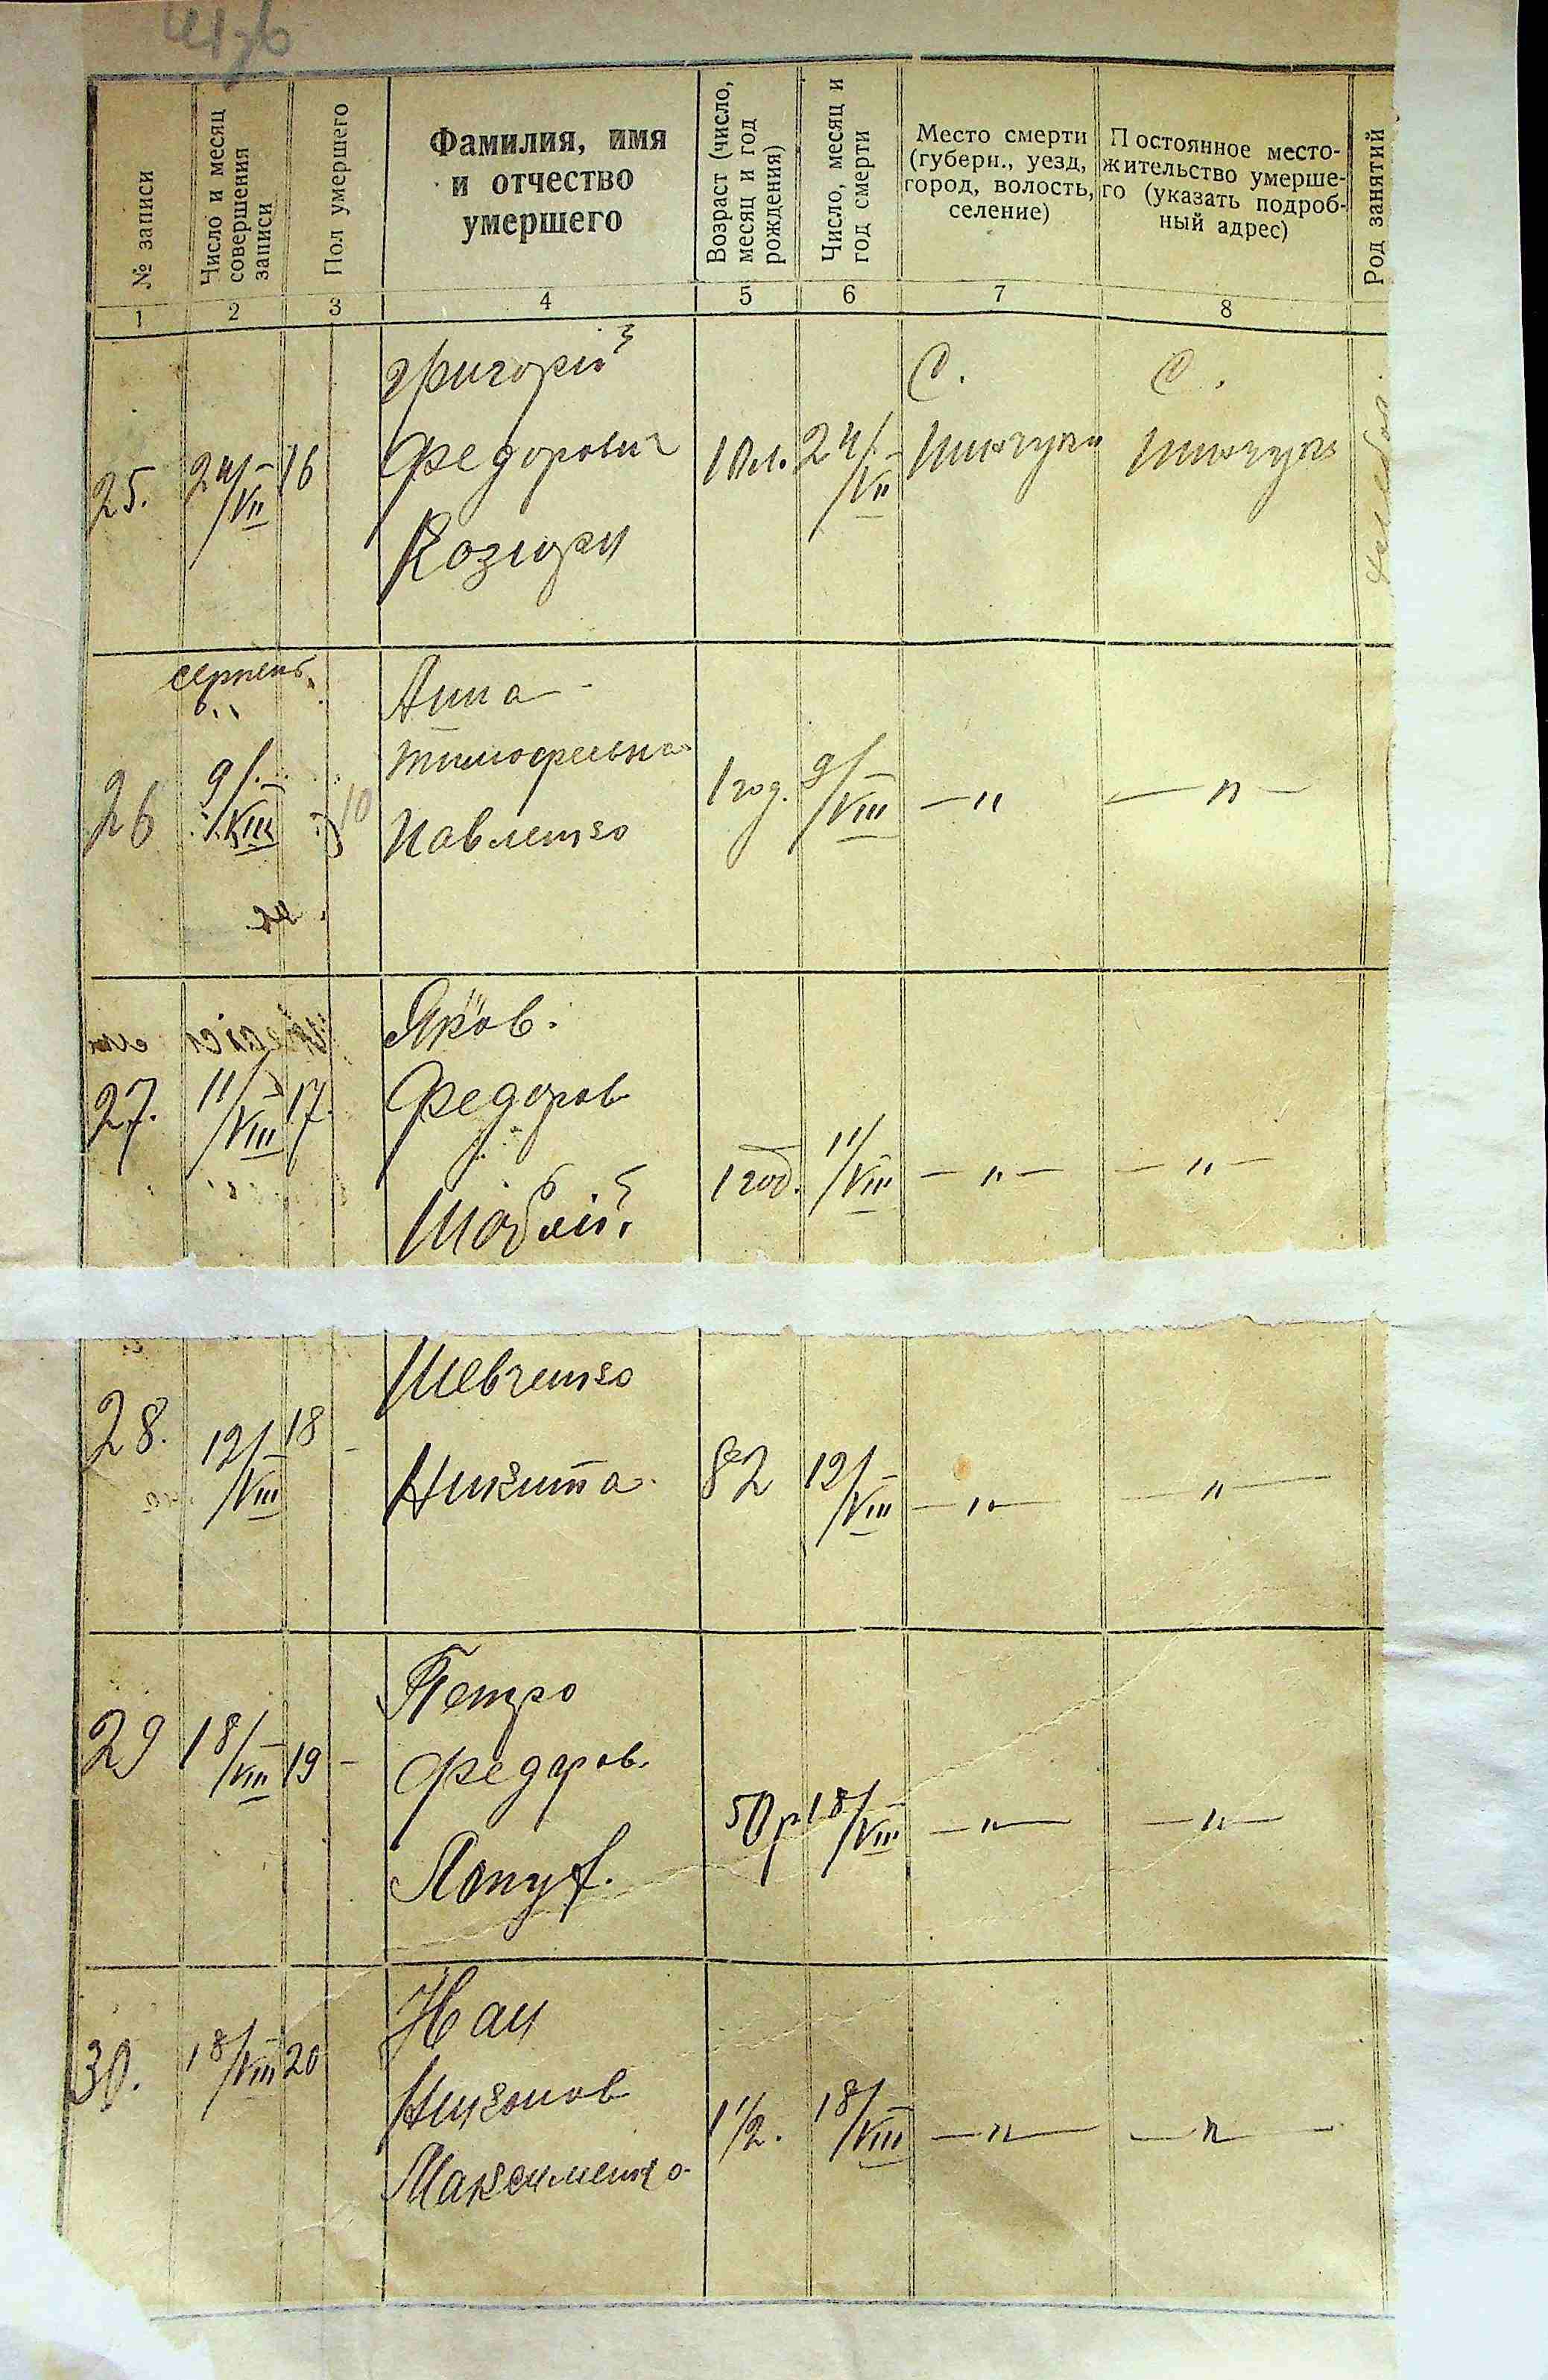 № записи
Число и месяц
совершения
записи
Пол умершего
Фамилия, имя
и отчество
умершего
Возраст (число,
месяц и год
рождения)
Число, месяц и
год смерти
Место смерти
(губерн., уезд,
город, волость,
селение)
Постоянное место-
жительство умерше-
го (указать подроб-
ный адрес)
Род занятий
1 2 3 4 5 6 7 8
Григорій
С. С.
25. 24/VII 16 Федорович 10 л. 24/VII
Козюри
серпень
Анна
Тимофеевна
26 9/VIII 10 1 год. 9/VIII — " — " —
Павленко
Яков.
27. 11/VIII 17. Федоров
1 год. 11/VIII — " — — " —
Шаблій
Шевченко
28. 12/VIII 18
Никита 82 12/VIII — " — — " —
Петро
29 18/VIII 19 — Федоров.
50 р 18/VIII — " — — " —
Лопух.
30. 18/VIII 20
Никонов
1 1/2. 18/VIII — " — — " —
Максименко